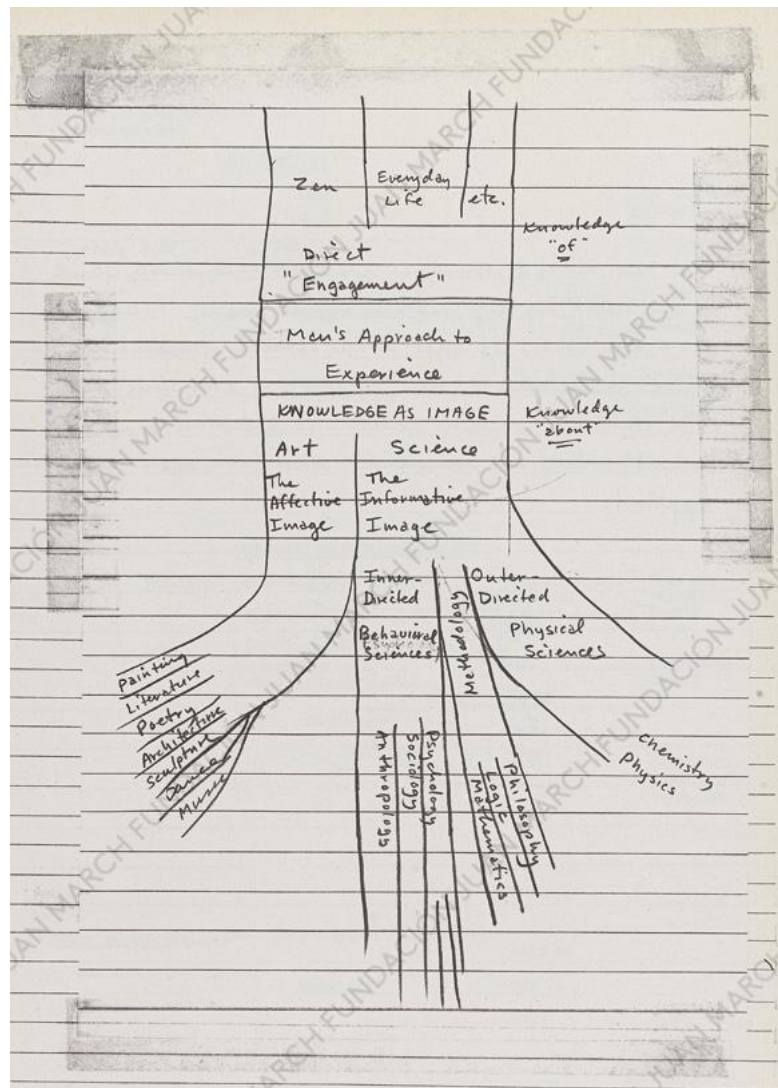 Zen
Everyday
Life
etc.
Knowledge
"of"
Direct
"Engagement"
Man's Approach to
Experience
KNOWLEDGE AS IMAGE
Knowledge
"about"
Art
Science
The
Affective
Image
The
Informative
Image
Inner-
Directed
Behavioral
Sciences
Methodology
Outer-
Directed
Physical
Sciences
Painting
Literature
Poetry
Architecture
Sculpture
Dance
Music
Anthropology
Sociology
Psychology
Mathematics
Logic
Philosophy
Chemistry
Physics
FUNDACIÓN JUAN MARCH